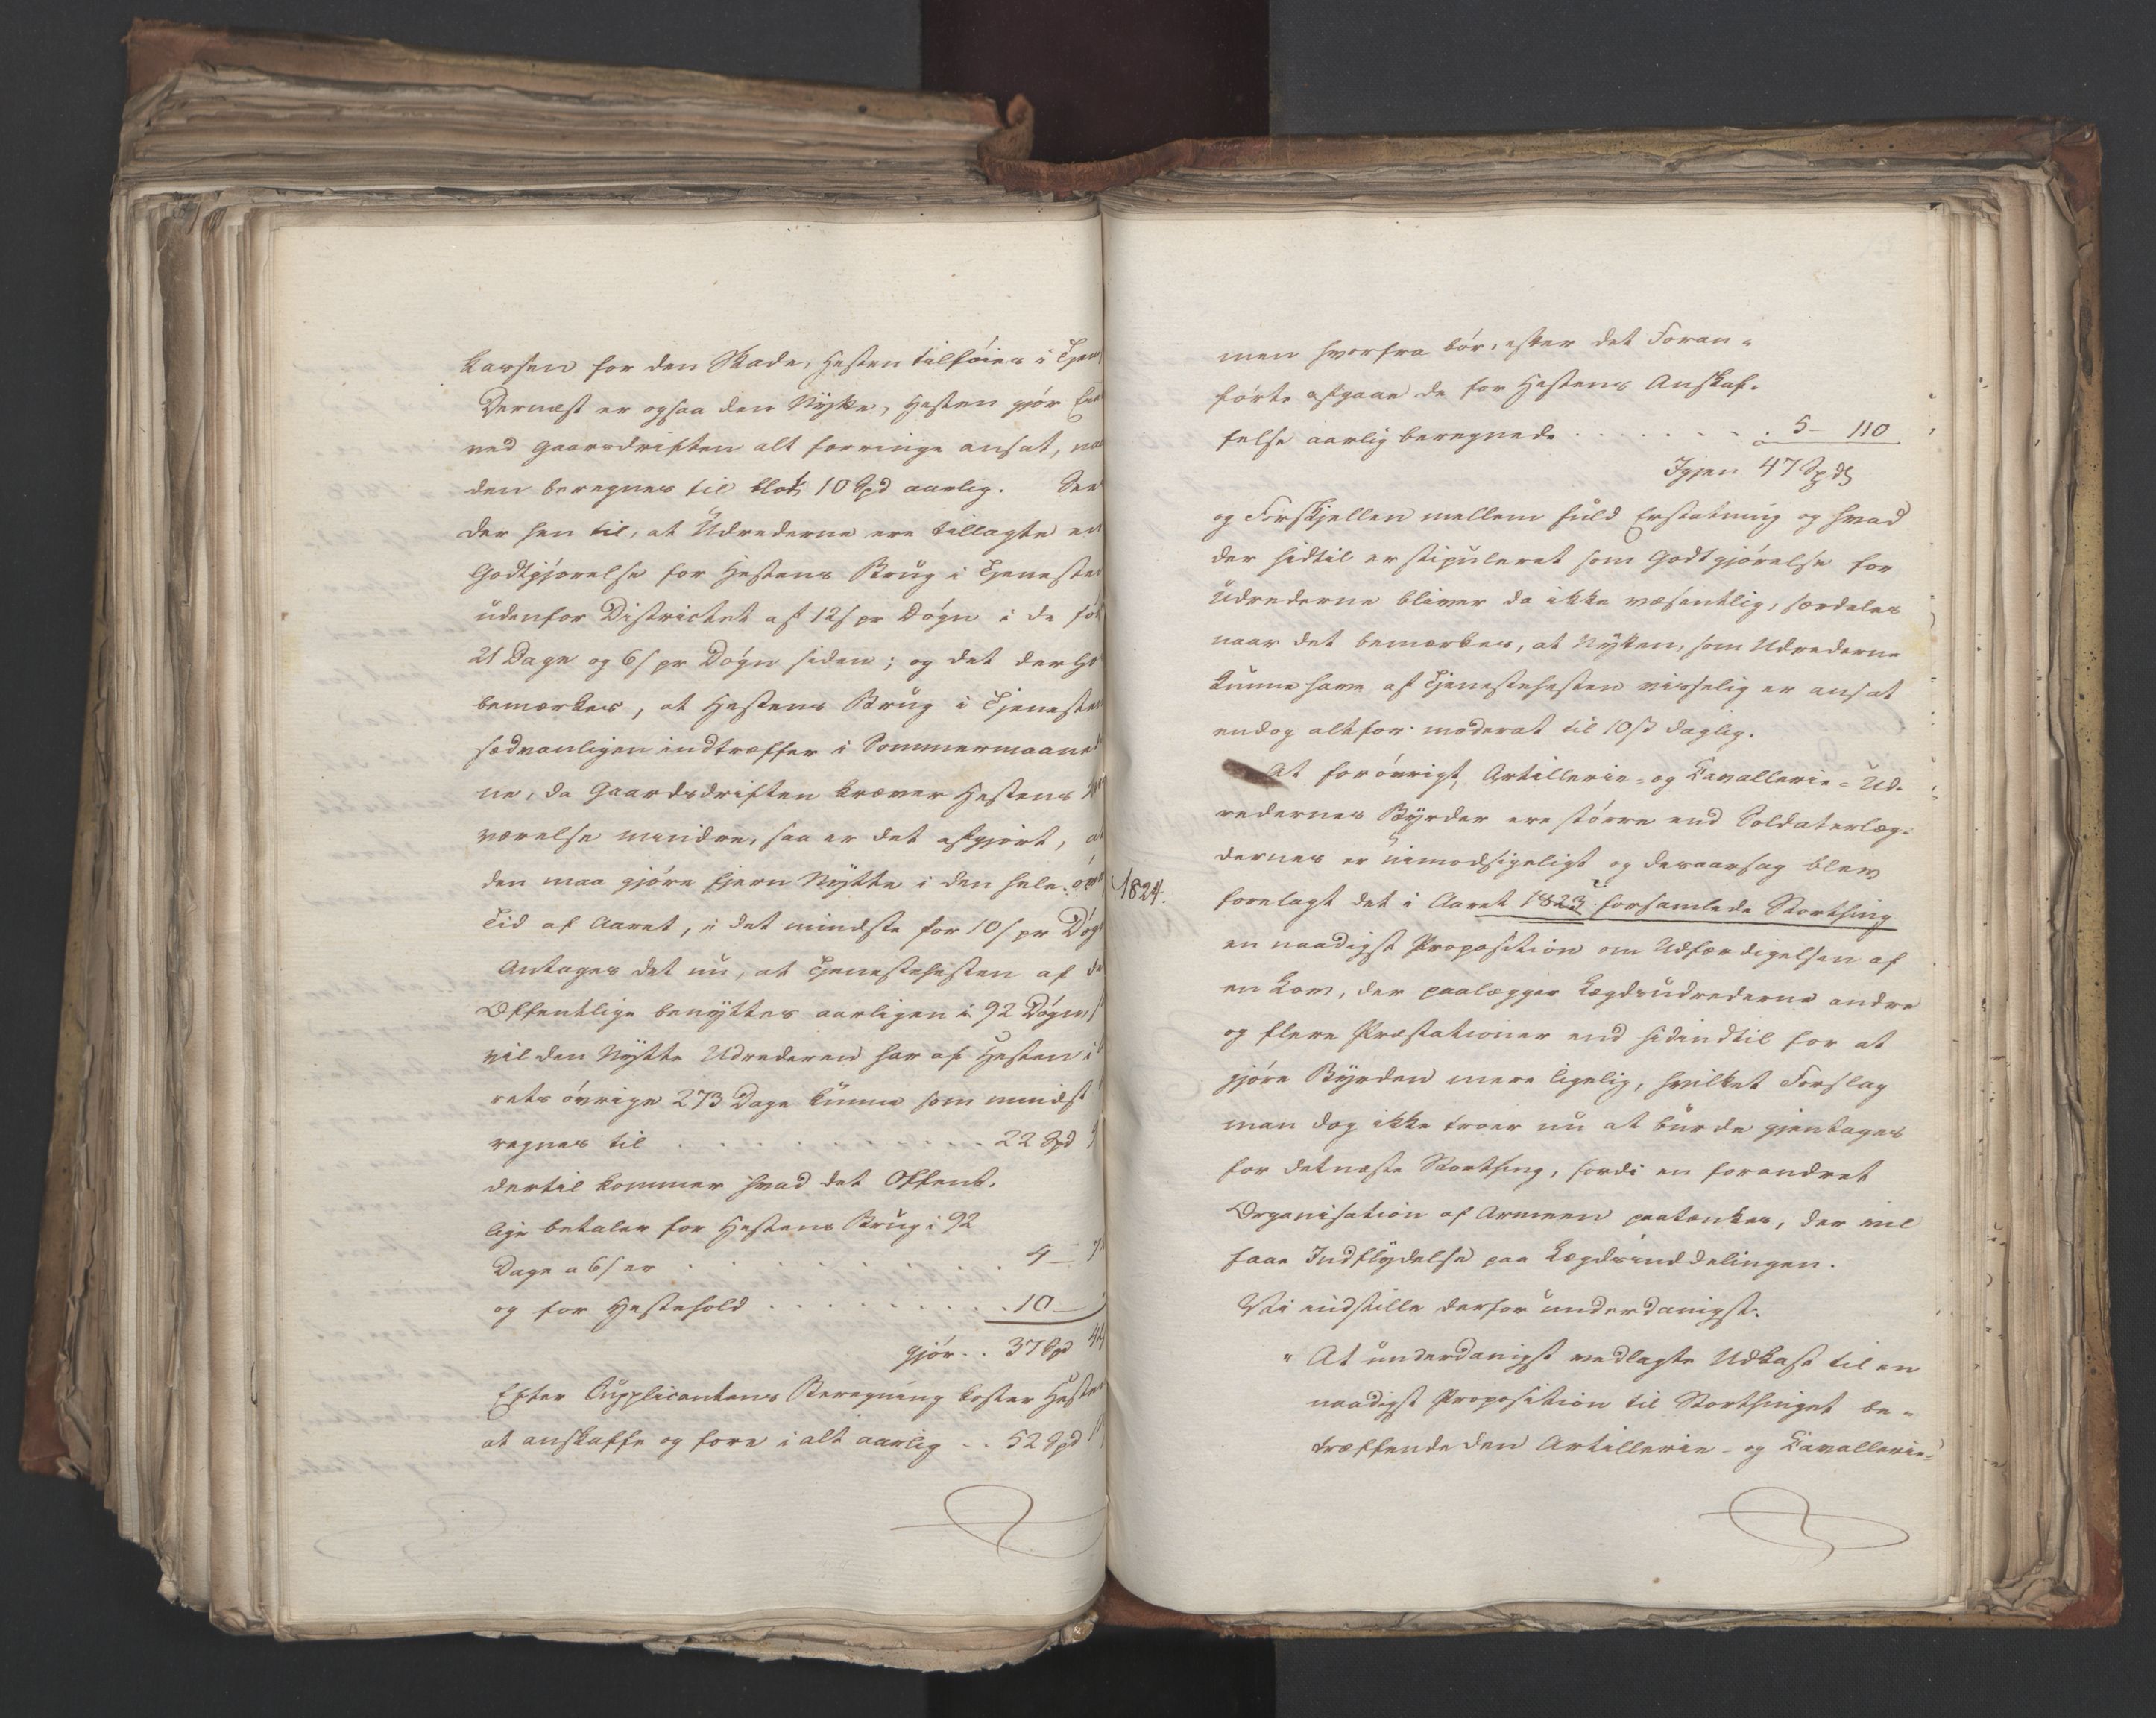 kassen for den Skade, Hesten tilføies i Tjen
Dernæst er ogsaa den Nytte, Hesten gjør
ved Gaardsdriften alt forringe ansat, naa
den beregnes til blot 10 Spd aarlig. Sees
der hen til, at Udrederne ere tillagte en
Godtgjørelse for Hestens Brug i Tjeneste
udenfor Districtet af 12 s pr Døgn i de før
21 Dage og 6 s pr Døgn siden; og det derho
bemærkes, at Hestens Brug i Tjenesten
sædvanligen indtræffer i Sommermaaned
ne, da Gaardsdriften kræver Hestens Nær
værelse mindre, saa er det afgjort, at
den maa gjøre Eieren Nytte i den hele øvr
Tid af Aaret, i det mindste for 10 s pr Døg
Antages det nu, at Tjenestehesten af de
Offentlige benyttes aarligen i 92 Døgn,
vil den Nytte Udrederen har af Hesten i
rets øvrige 273 Dage kunne som mindst
regnes til . . . . . . . . . . . 22 Spd
dertil kommer hvad det Offent-
lige betaler for Hestens Brug i 92
Dage a 6 s er . . . . . . . . . 4 —
og for Hestehold . . . . . . . . . 10 —
gjør . . 37 Spd 44
Efter Supplicantens Beregning koster Hesten
at anskaffe og fore i alt aarlig . . 52 Spd
men hvorfra bør, efter det Foran-
førte afgaae de for Hestens Anskaf-
felse aarlig beregnede . . . . . . . 5 — 110
Igjen 47 Spd
og Forskjellen mellem fuld Erstatning og hvad
der hidtil er stipuleret som Godtgjørelse for
Udrederne bliver da ikke væsentlig, særdeles
naar det bemærkes, at Nytten, som Udrederne
kunne have af Tjenestehesten visselig er ansat
endog altfor moderat til 10 s daglig.
At forøvrigt, Artillerie- og Cavallerie-Ud-
redernes Byrder ere større end Soldaterlæg-
dernes er uimodsigeligt og desaarsag blev
1824.
forelagt det i Aaret 1823 forsamlede Storthing
en naadigst Proposition om Udfærdigelsen af
en Lov, der paalægger Lægdsudrederne andre
og flere Præstationer end hidindtil for at
gjøre Byrden mere ligelig, hvilket Forslag
man dog ikke troer nu at burde gjentages
for det næste Storthing, fordi en forandret
Organisation af Armeen paatænkes, der vil
faae Indflydelse paa Lægdsinddelingen.
Vi indstille derfor underdanigst:
" At underdanigst vedlagte Udkast til en
naadigst Proposition til Storthinget be-
træffende den Artillerie- og Cavallerie-